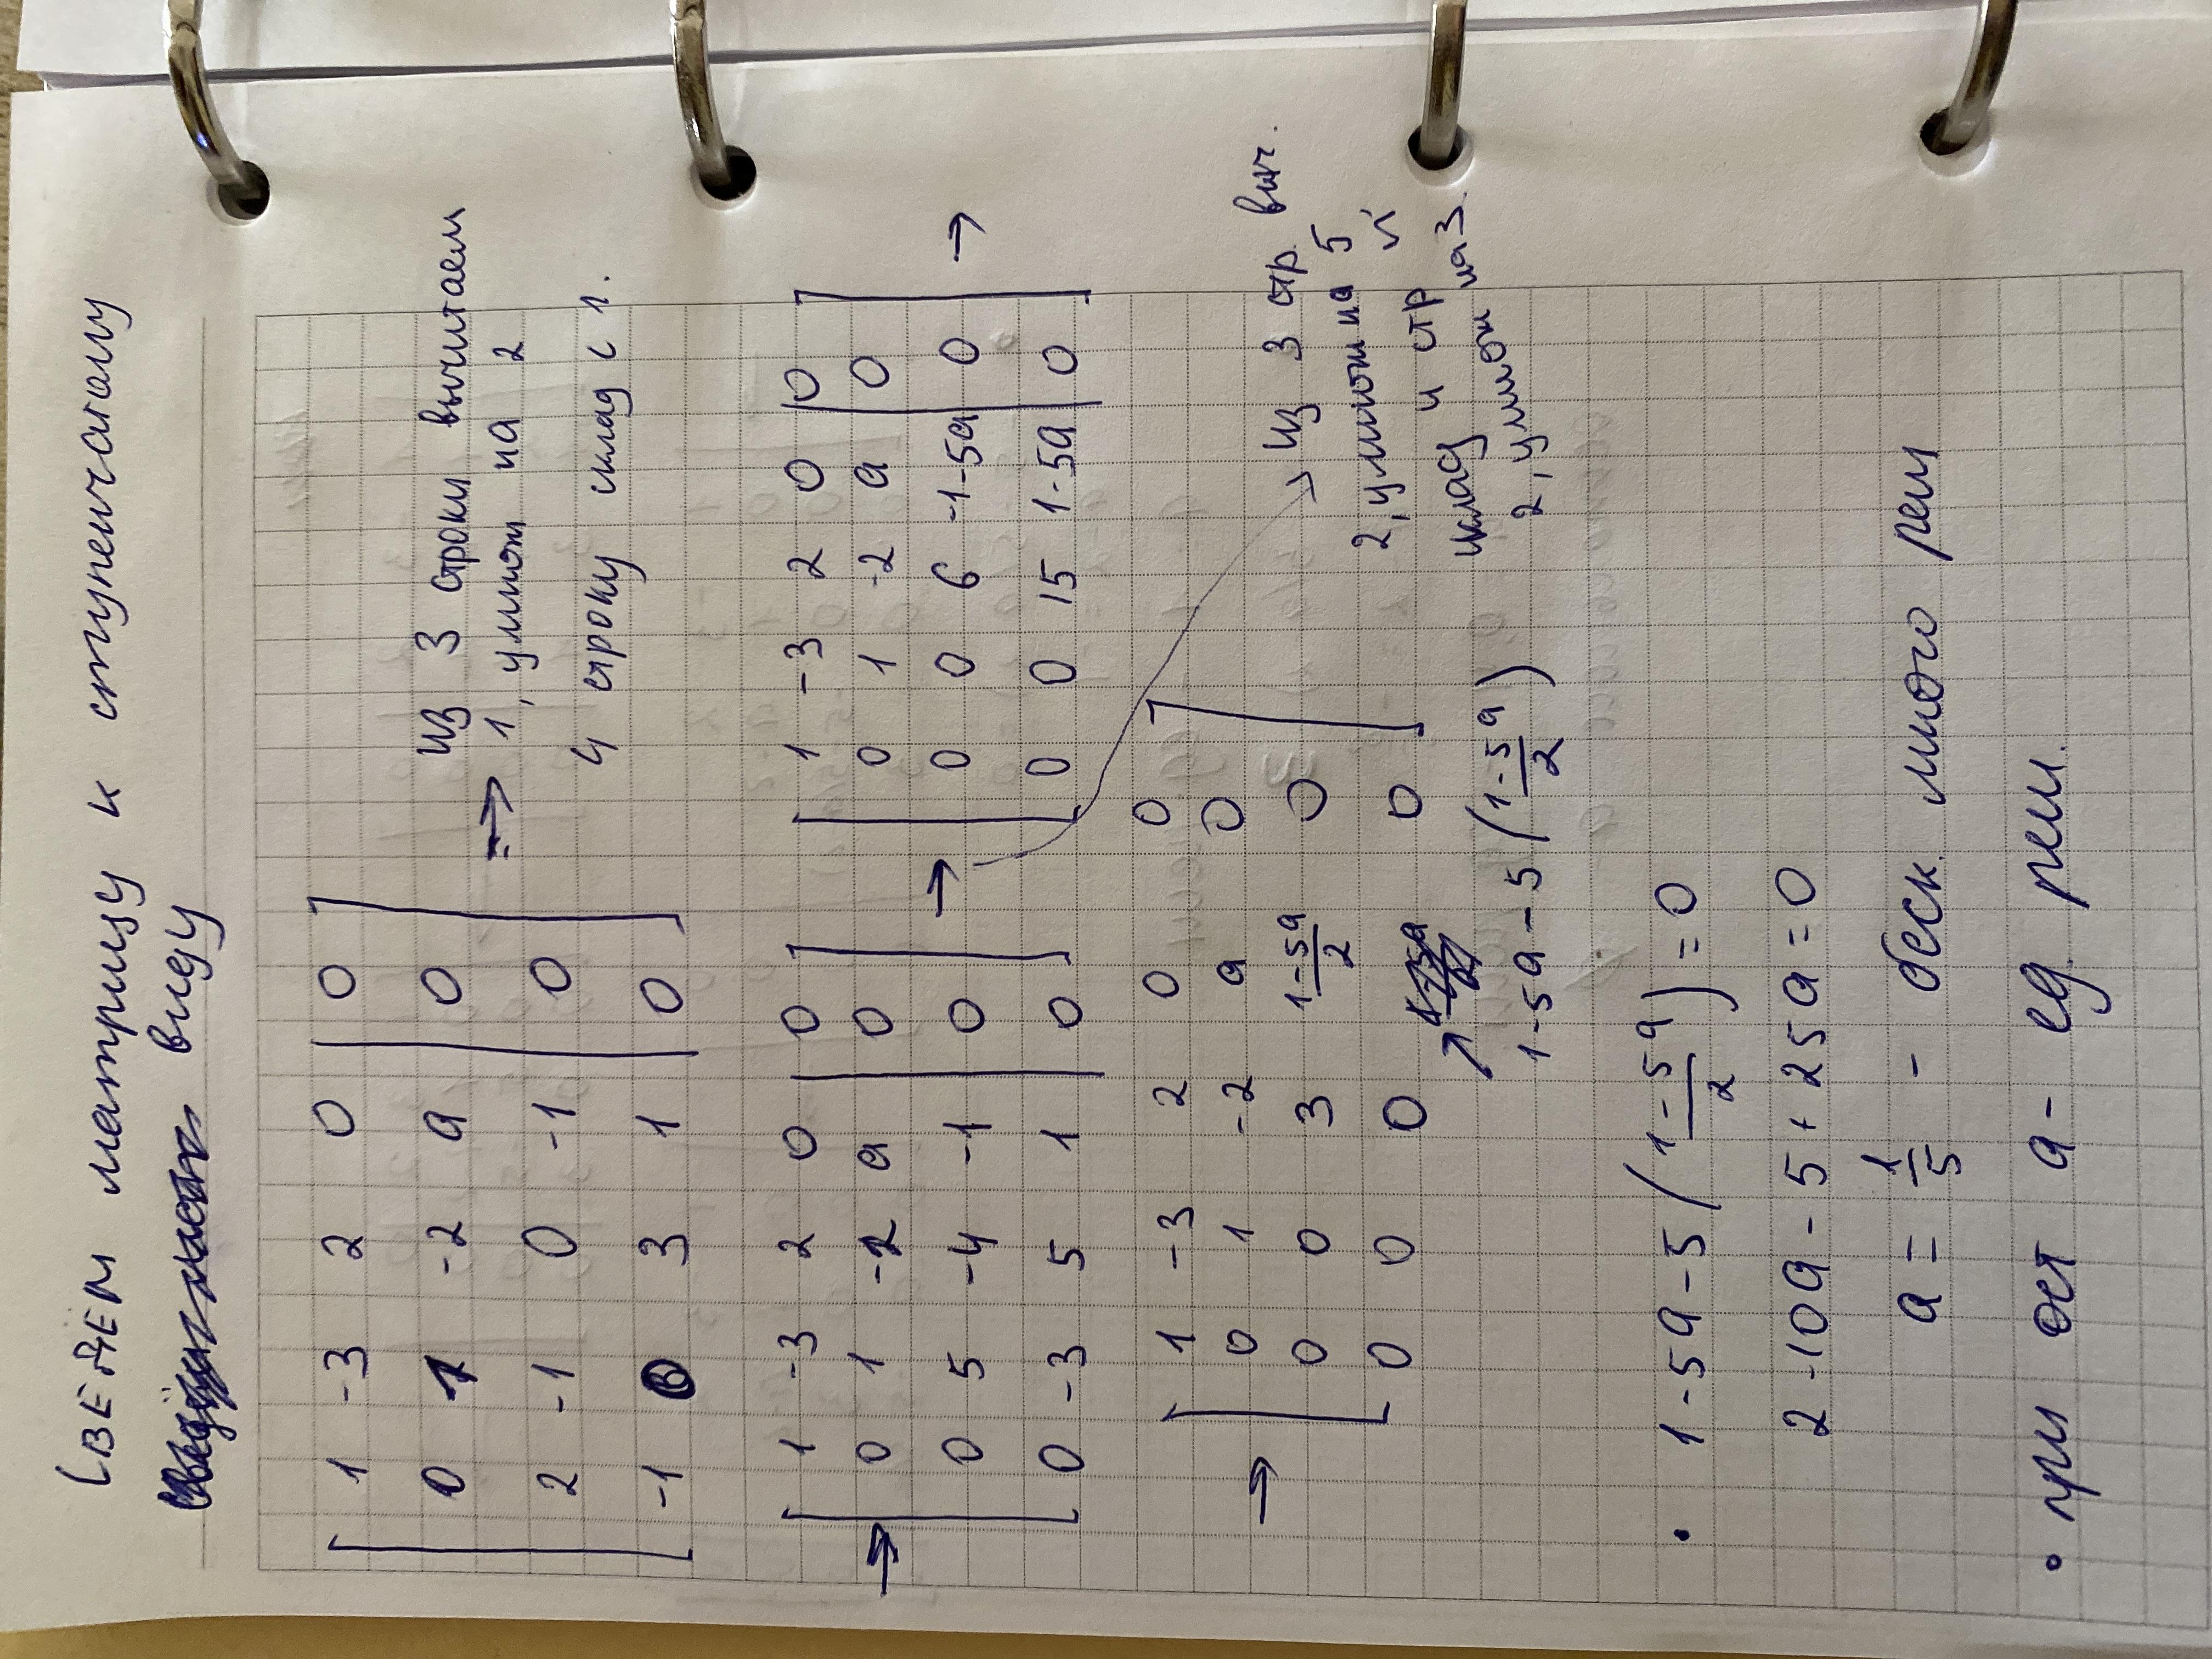 СВЕДЕМ матрицу к ступенчатому
виду
1 -3 2 0 | 0
0 1 -2 a | 0
2 -1 0 -1 | 0
-1 0 3 1 | 0
=> из 3 строки вычитаем
1, умнож на 2
4 строку склад с 1.
→ 1 -3 2 0 | 0
0 1 -2 a | 0
0 5 -4 -1 | 0
0 -3 5 1 | 0
→ 1 -3 2 0 | 0
0 1 -2 a | 0
0 0 6 -1-5a | 0
0 0 15 1-5a | 0
→
→ из 3 стр. выч.
2, умнож на 5 и
склад 4 стр
2, умнож на 3.
→ 1 -3 2 0 0
0 1 -2 a 0
0 0 3 (1-5a)/2 0
0 0 0 0
↗ 1-5a-5((1-5a)/2)
• 1-5a-5((1-5a)/2)=0
2-10a-5+25a=0
a = 1/5 - беск. много реш
• при ост a - ед. реш.